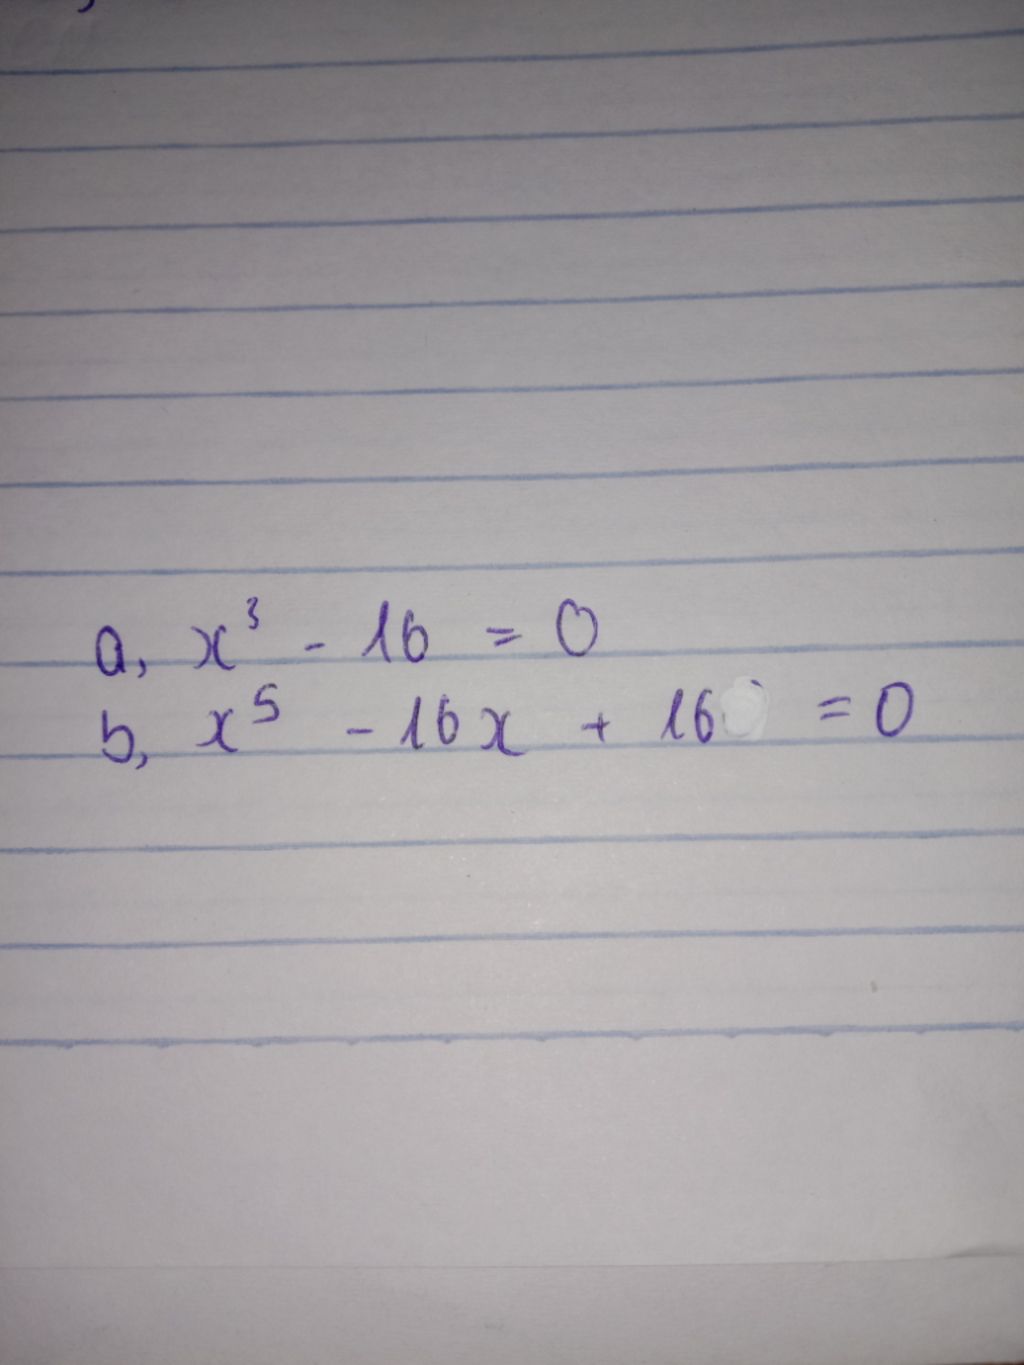 a, x³ - 16 = 0
b, x⁵ - 16x + 16 = 0